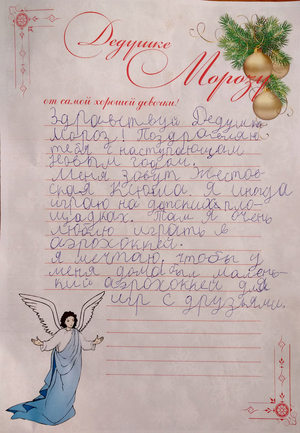 Дедушке
Морозу
от самой хорошей девочки!
Здравствуй Дедушка
Мороз! Поздравляю
тебя с наступающам
Новым годом.
Меня зовут Жестов-
ская Ксюша. Я иногда
играю на детских пло-
щадках. Там я очень
люблю играть в
аэрохоккей.
Я мечтаю, чтобы у
меня дома был малень-
кий аэрохоккей для
игр с друзьями.